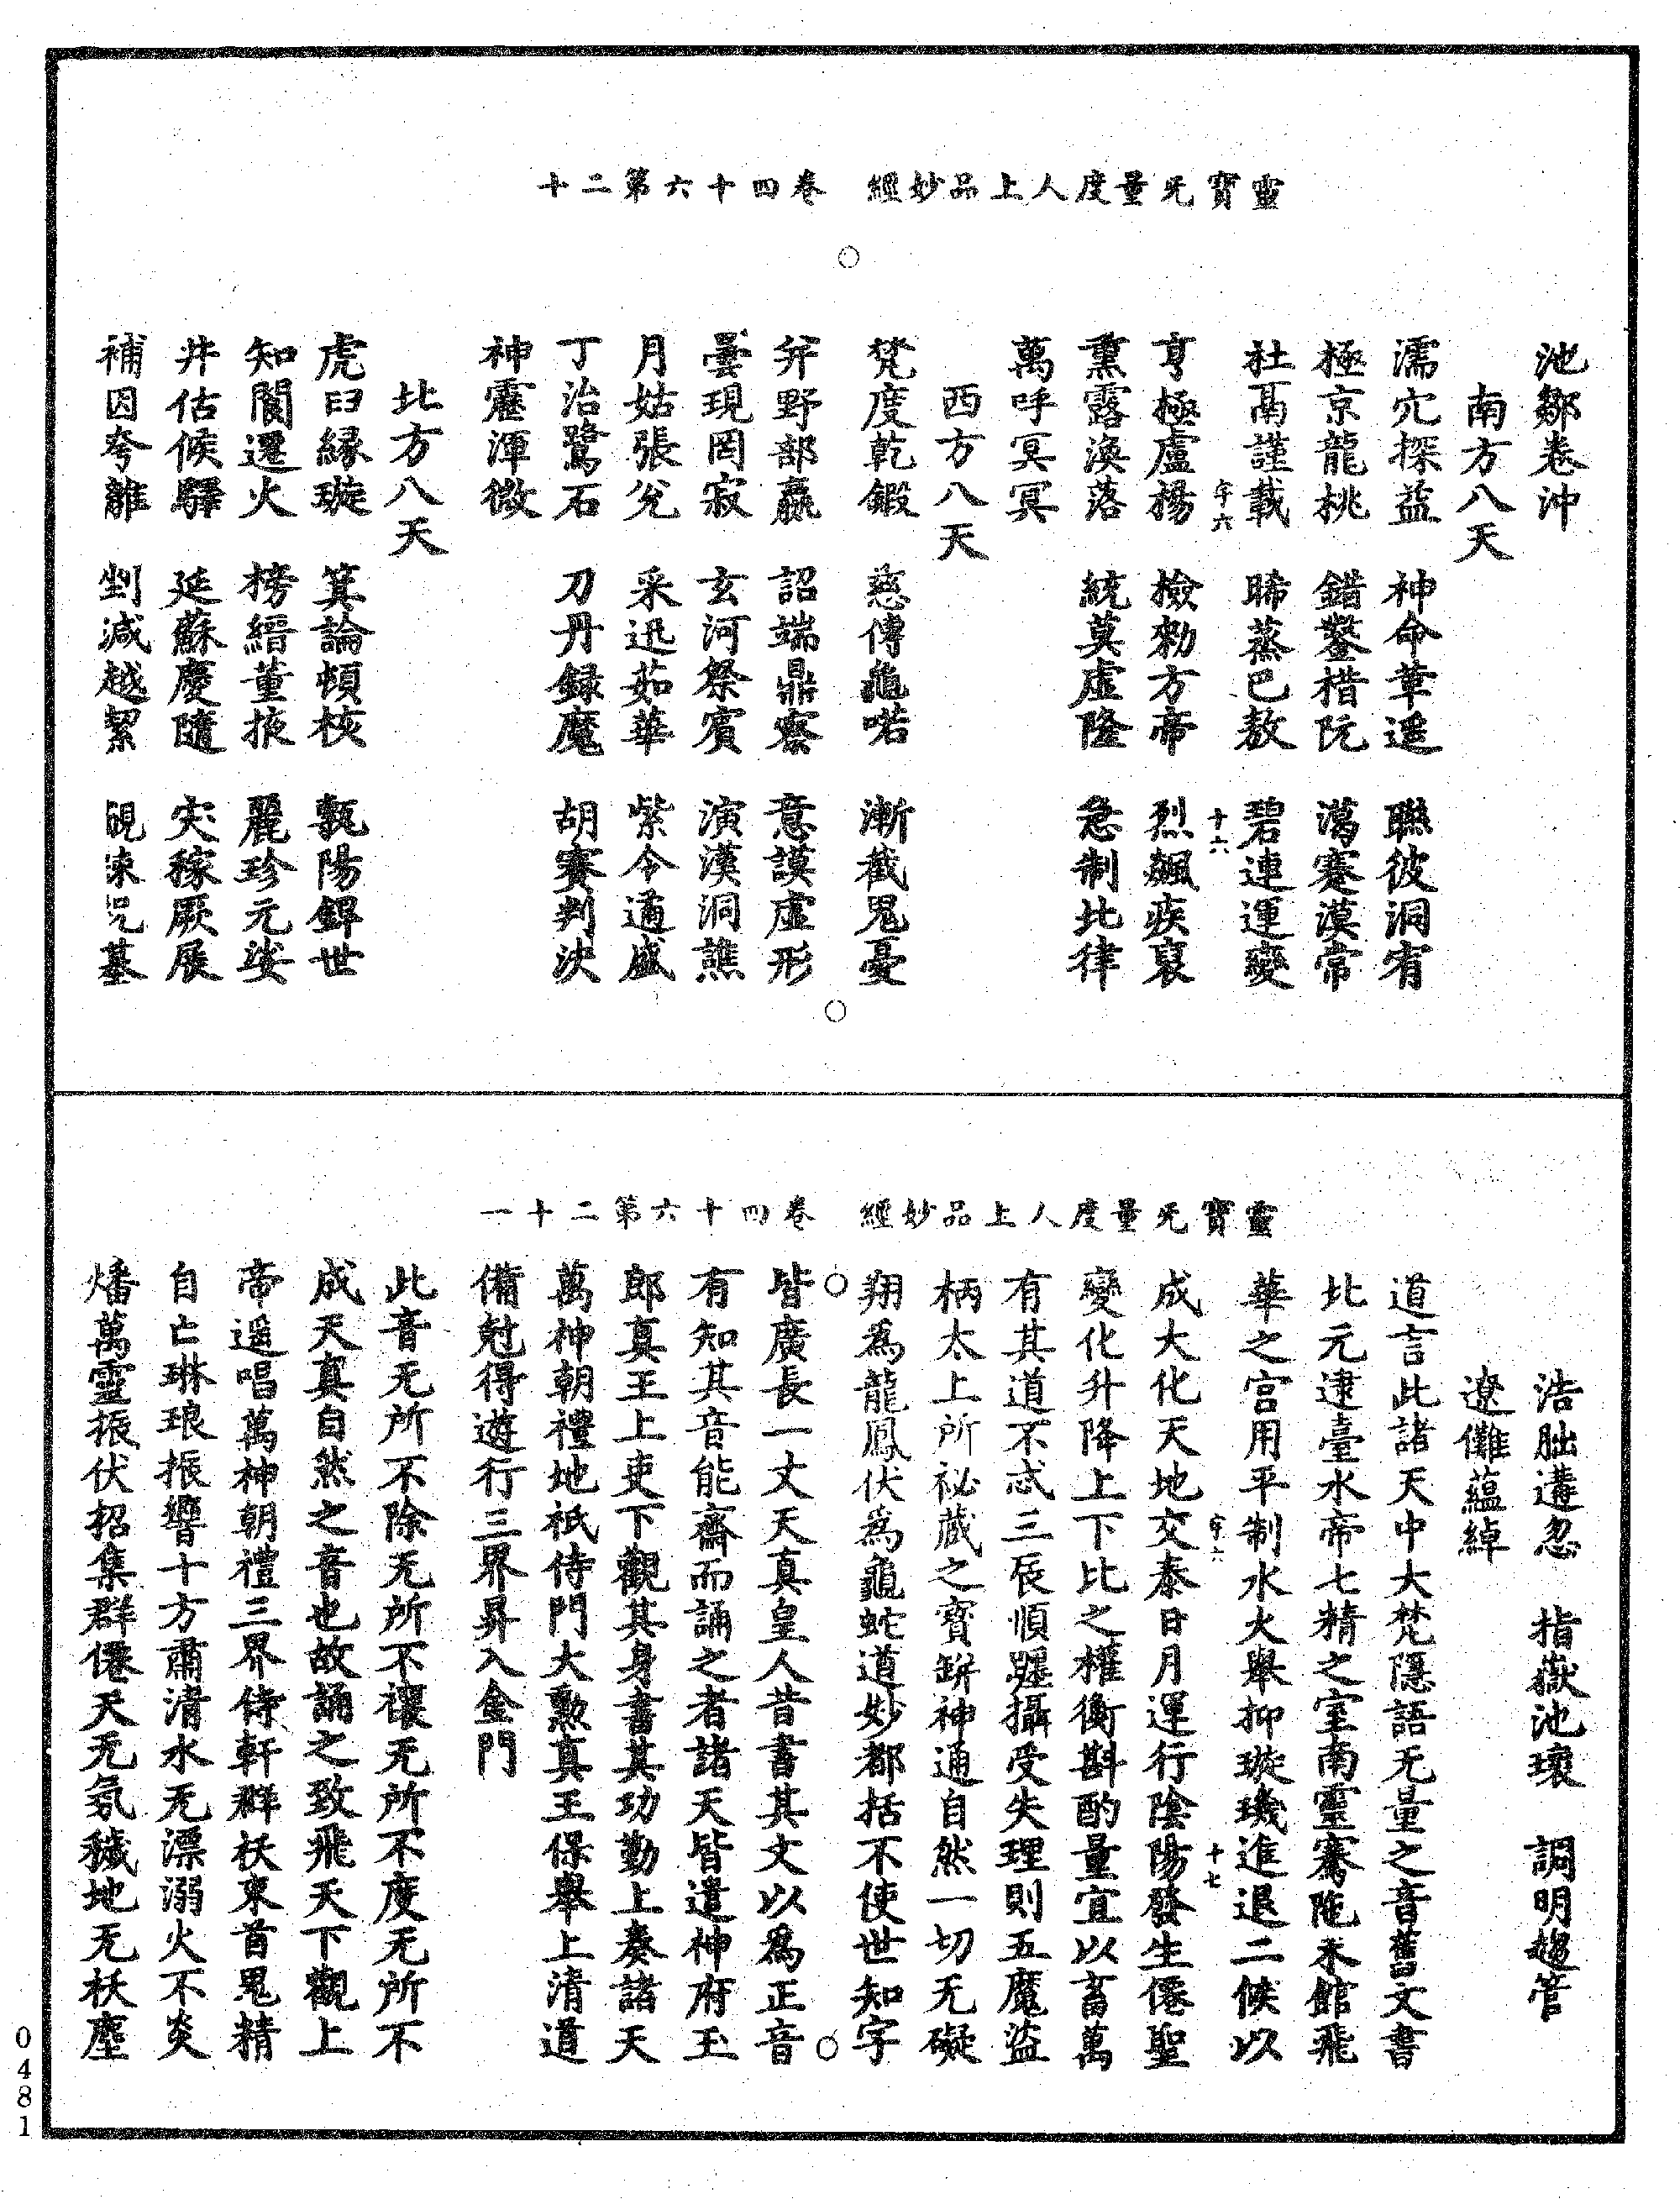 靈寶无量度人上品妙經 卷四十六第二十
池鄒卷沖
南方八天
濡穴探益 神命葦遥 聯彼洞宥
極京龍桃 錯鑿楷阮 蕩蹇漠常
社鬲謹載 晞蒸巴敖 碧連運變
亨極盧揚 檢勑方帝 烈飆疾裒
熏露渙落 統莫虛隆 急制比律
萬呼冥冥
西方八天
梵度乾鍛 慈傳龜喏 漸截鬼憂
并野部羸 詔端鼎察 意謨虛形
曇現罔寂 玄河祭賓 演漢洞譙
月姑張兊 采迅茹華 紫令適盛
丁治鷺石 刀丹録魔 胡賽判決
神靂渾微
北方八天
虎臼緣璇 箕論頓梜 甄陽鐸世
知閬遷火 榜縉董掖 麗珍元娑
井估候驛 延蘇慶隨 宊稼厥展
補囚夸離 剉減越絜
靈寶无量度人上品妙經 卷四十六第二十一
浩朏遘忽 指嶽池壞 調明趨管
遼儺蘊綽
道言此諸天中大梵隱語无量之音舊文書
北元逮臺水帝七精之室南靈騫陁木館飛
華之宫用平制水火舉抑璇璣進退二候以
成大化天地交泰日月運行陰陽發生僊聖
變化升降上下比之權衡斟酌量宜以畜萬
有其道不忒三辰順躔攝受失理則五魔盜
柄太上所祕蔵之寶缾神通自然一切无礙
翔爲龍鳳伏爲龜蛇道妙都括不使世知字
皆廣長一丈天真皇人昔書其文以爲正音
有知其音能齋而誦之者諸天皆遣神府玉
郎真王上吏下觀其身書其功勤上奏諸天
萬神朝禮地祇侍門大勲真王保舉上清道
備尅得遊行三界昇入金門
此音无所不除无所不禳无所不度无所不
成天真自然之音也故誦之致飛天下觀上
帝遥唱萬神朝禮三界侍軒群妖束首鬼精
自亡琳琅振響十方肅清水无漂溺火不炎
燔萬靈振伏招集群僊天无氛穢地无妖塵
0481